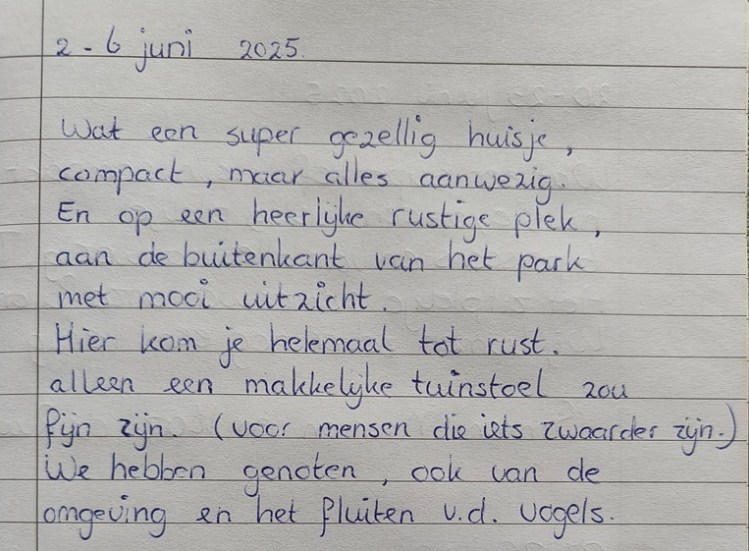 2-6 juni 2025.
Wat een super gezellig huisje,
compact, maar alles aanwezig.
En op een heerlijke rustige plek,
aan de buitenkant van het park
met mooi uitzicht.
Hier kom je helemaal tot rust.
alleen een makkelijke tuinstoel zou
fijn zijn. (voor mensen die iets zwaarder zijn.)
We hebben genoten, ook van de
omgeving en het fluiten v.d. vogels.